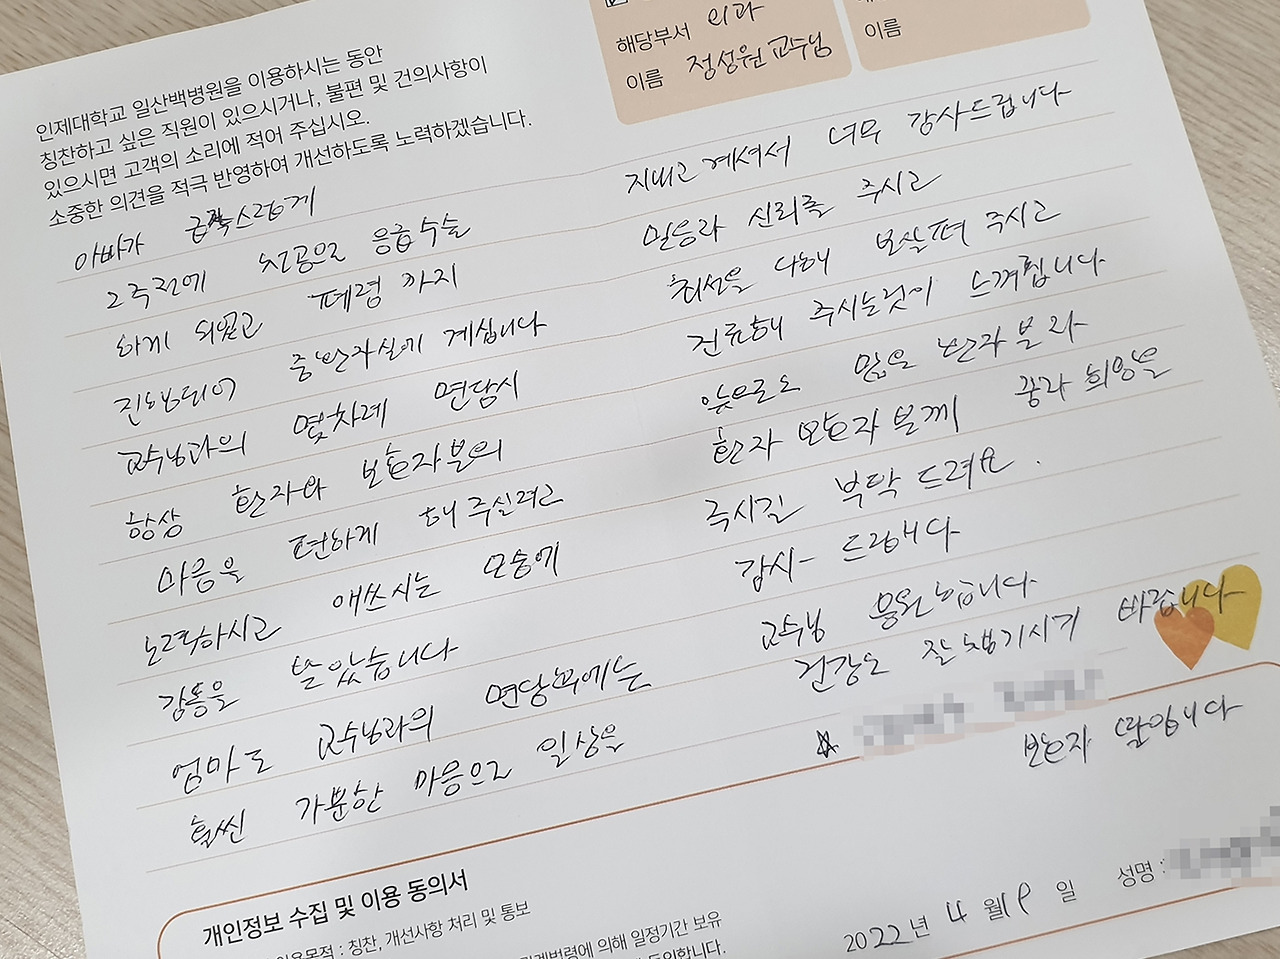 해당부서 외과
이름 정성원 교수님
이름
인제대학교 일산백병원을 이용하시는 동안
칭찬하고 싶은 직원이 있으시거나, 불편 및 건의사항이
있으시면 고객의 소리에 적어 주십시오.
소중한 의견을 적극 반영하여 개선하도록 노력하겠습니다.
아빠가 급작스럽게
2주전에 천공으로 응급수술
하게 되었고 폐렴 까지
진행되어 중환자실에 계십니다
교수님과의 몇차례 면담시
항상 환자와 보호자분의
마음을 편하게 해 주실려고
노력하시고 애쓰시는 모습에
감동을 받았습니다
엄마도 교수님과의 면담후에는
훨씬 가뿐한 마음으로 일상을
지내고 계셔서 너무 감사드립니다
믿음과 신뢰를 주시고
최선을 다해 보살펴 주시고
진료해 주시는것이 느껴집니다
앞으로도 많은 환자분과
환자 보호자분께 꿈과 희망을
주시길 부탁 드려요.
감사- 드립니다
교수님 응원합니다
건강도 잘 챙기시기 바랍니다
보호자 딸입니다
개인정보 수집 및 이용 동의서
이용목적 : 칭찬, 개선사항 처리 및 통보
관계법령에 의해 일정기간 보유
동의합니다.
2022년 4월 19일 성명 :